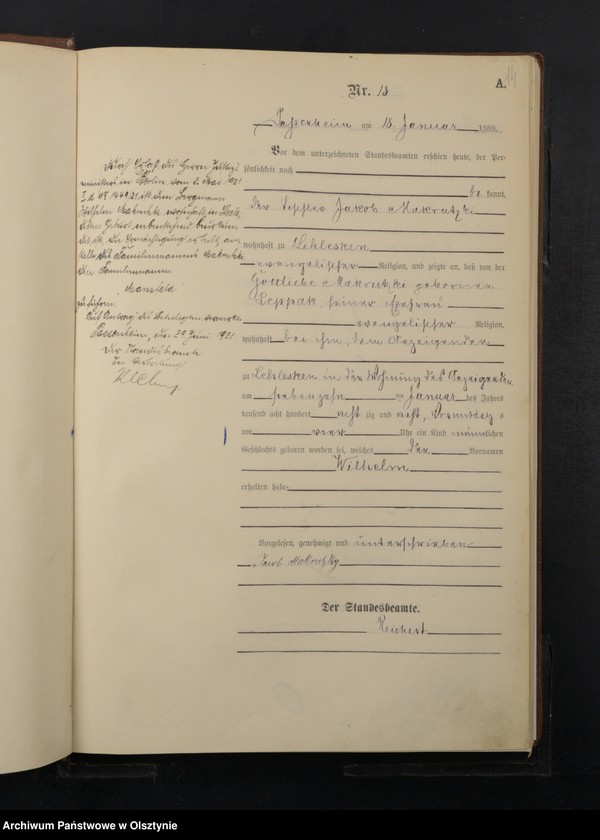 A.
Nr. 13
Passenheim am 18. Januar 1888.
Vor dem unterzeichneten Standesbeamten erschien heute, der Per-
sönlichkeit nach
be kannt,
der Jakob Makratzki
wohnhaft zu Lehlesken
evangelischer Religion, und zeigte an, daß von der
Gottliebe Makratzki geborenen
Leppak, seiner Ehefrau
evangelischer Religion,
wohnhaft bei ihm, dem Anzeigenden
zu Lehlesken in der Wohnung des Anzeigenden
am siebenzehn ten Januar des Jahres
tausend acht hundert acht zig und acht, Vormittag s
um vier Uhr ein Kind männlichen
Geschlechts geboren worden sei, welches den Vornamen
Wilhelm
erhalten habe.
Vorgelesen, genehmigt und unterschrieben
Jacob
Der Standesbeamte.
Reichert
des Herrn
ministers in Berlin vom 1921
ist dem Bergmann
Wilhelm
die Ermächtigung erteilt, an
Stelle des Familiennamens
den Familiennamen
Mansfeld
zu führen.
Auf Antrag des Beteiligten
Passenheim, den 29 Juni 1921
Der Standesbeamte
In Vertretung
Archiwum Państwowe w Olsztynie